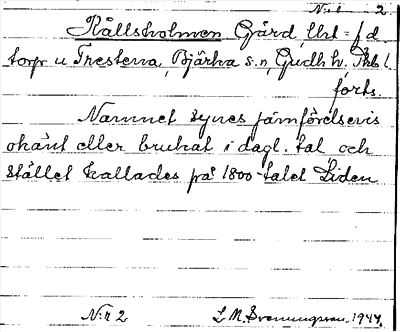 N:r 2 2
Källsholmen Gård, lht = f d
torp u Trestena, Bjärka s:n, Gudh. h.
forts.
Namnet synes jämförelsevis
okänt eller brukat i dagl. tal och
stället kallades på 1800-talet Liden
N:r 2 L M. Svenungsson. 1947.